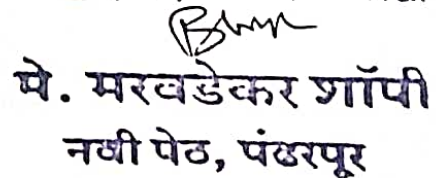 मे. मरवडेकर शॉपी
नवी पेठ, पंढरपूर